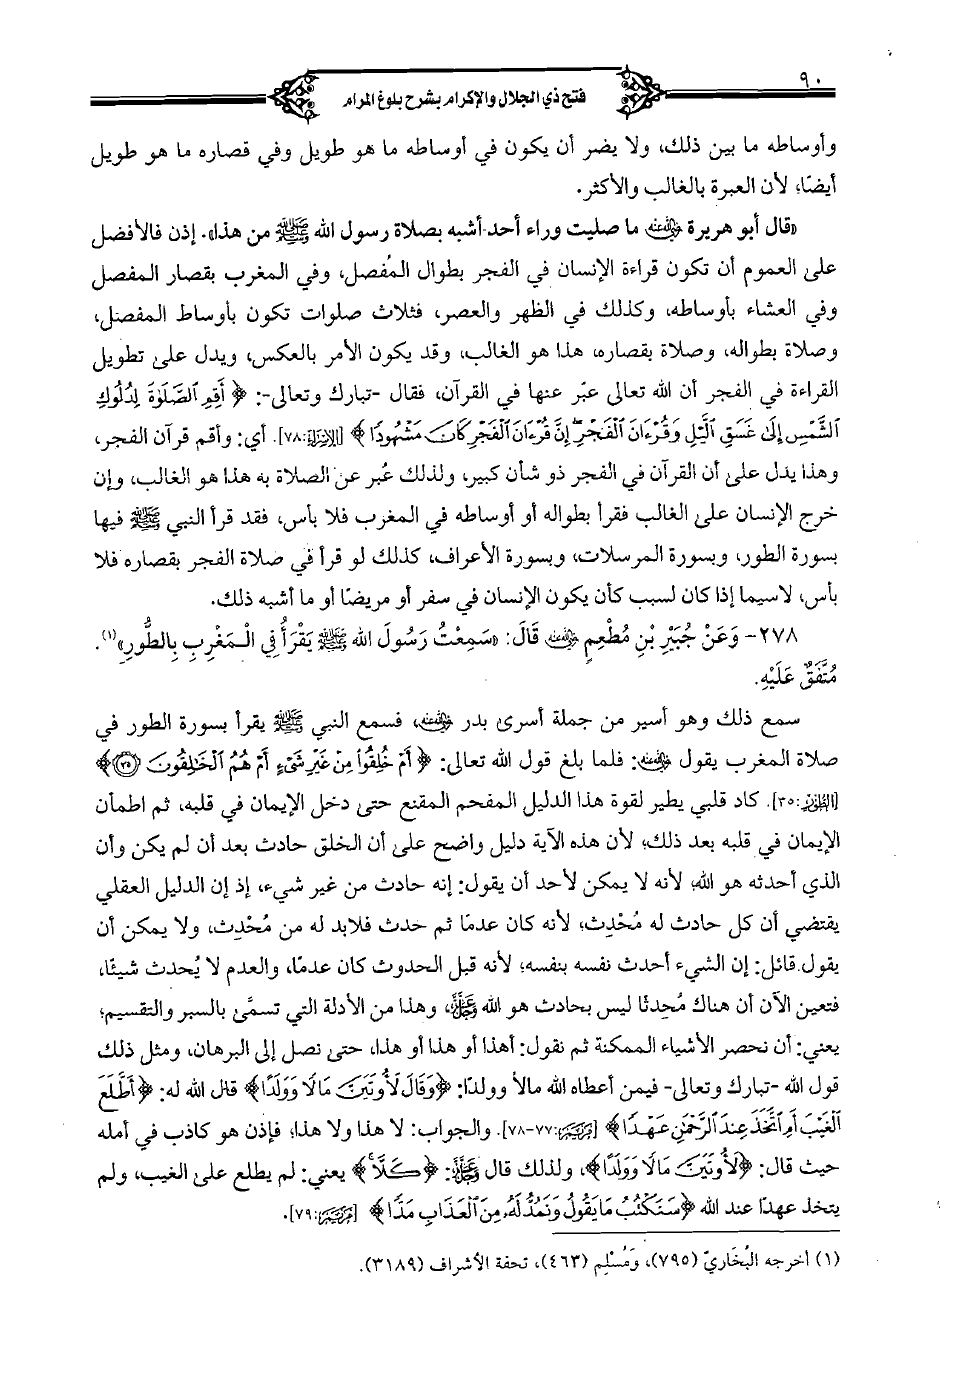 ٩٠
فتح ذي الجلال والإكرام بشرح بلوغ المرام
وأوساطه ما بين ذلك، ولا يضر أن يكون في أوساطه ما هو طويل وفي قصاره ما هو طويل
أيضًا؛ لأن العبرة بالغالب والأكثر.
«قال أبو هريرة رضي الله عنه ما صليت وراء أحد أشبه بصلاة رسول الله ﷺ من هذا». إذن فالأفضل
على العموم أن تكون قراءة الإنسان في الفجر بطوال المُفصل، وفي المغرب بقصار المفصل
وفي العشاء بأوساطه، وكذلك في الظهر والعصر، فثلاث صلوات تكون بأوساط المفصل،
وصلاة بطواله، وصلاة بقصاره، هذا هو الغالب، وقد يكون الأمر بالعكس، ويدل على تطويل
القراءة في الفجر أن الله تعالى عبّر عنها في القرآن، فقال -تبارك وتعالى-: ﴿ أَقِمِ ٱلصَّلَوٰةَ لِدُلُوكِ
ٱلشَّمْسِ إِلَىٰ غَسَقِ ٱلَّيْلِ وَقُرْءَانَ ٱلْفَجْرِ إِنَّ قُرْءَانَ ٱلْفَجْرِ كَانَ مَشْهُودًا ﴾ [الإسراء:٧٨]. أي: وأقم قرآن الفجر،
وهذا يدل على أن القرآن في الفجر ذو شأن كبير، ولذلك عُبر عن الصلاة به هذا هو الغالب، وإن
خرج الإنسان على الغالب فقرأ بطواله أو أوساطه في المغرب فلا بأس، فقد قرأ النبي ﷺ فيها
بسورة الطور، وبسورة المرسلات، وبسورة الأعراف، كذلك لو قرأ في صلاة الفجر بقصاره فلا
بأس، لاسيما إذا كان لسبب كأن يكون الإنسان في سفر أو مريضًا أو ما أشبه ذلك.
٢٧٨- وَعَنْ جُبَيْرِ بْنِ مُطْعِمٍ رضي الله عنه قَالَ: «سَمِعْتُ رَسُولَ الله ﷺ يَقْرَأُ فِي الْمَغْرِبِ بِالطُّورِ»(١).
مُتَّفَقٌ عَلَيْهِ.
سمع ذلك وهو أسير من جملة أسرى بدر رضي الله عنه، فسمع النبي ﷺ يقرأ بسورة الطور في
صلاة المغرب يقول رضي الله عنه: فلما بلغ قول الله تعالى: ﴿ أَمْ خُلِقُوا۟ مِنْ غَيْرِ شَىْءٍ أَمْ هُمُ ٱلْخَـٰلِقُونَ (٣٥) ﴾
[الطور:٣٥]. كاد قلبي يطير لقوة هذا الدليل المفحم المقنع حتى دخل الإيمان في قلبه، ثم اطمأن
الإيمان في قلبه بعد ذلك؛ لأن هذه الآية دليل واضح على أن الخلق حادث بعد أن لم يكن وأن
الذي أحدثه هو الله؛ لأنه لا يمكن لأحد أن يقول: إنه حادث من غير شيء، إذ إن الدليل العقلي
يقتضي أن كل حادث له مُحْدِث؛ لأنه كان عدمًا ثم حدث فلابد له من مُحْدِث، ولا يمكن أن
يقول قائل: إن الشيء أحدث نفسه بنفسه؛ لأنه قبل الحدوث كان عدمًا، والعدم لا يُحدث شيئًا،
فتعين الآن أن هناك مُحدِثًا ليس بحادث هو الله عز وجل، وهذا من الأدلة التي تسمَّى بالسبر والتقسيم؛
يعني: أن نحصر الأشياء الممكنة ثم نقول: أهذا أو هذا أو هذا، حتى نصل إلى البرهان، ومثل ذلك
قول الله -تبارك وتعالى- فيمن أعطاه الله مالًا وولدًا: ﴿وَقَالَ لَأُوتَيَنَّ مَالًا وَوَلَدًا﴾ قال الله له: ﴿أَطَّلَعَ
ٱلْغَيْبَ أَمِ ٱتَّخَذَ عِندَ ٱلرَّحْمَٰنِ عَهْدًا ﴾ [مريم:٧٧-٧٨]. والجواب: لا هذا ولا هذا؛ فإذن هو كاذب في أمله
حيث قال: ﴿لَأُوتَيَنَّ مَالًا وَوَلَدًا﴾، ولذلك قال عز وجل: ﴿كَلَّا﴾ يعني: لم يطلع على الغيب، ولم
يتخذ عهدًا عند الله ﴿سَنَكْتُبُ مَا يَقُولُ وَنَمُدُّ لَهُۥ مِنَ ٱلْعَذَابِ مَدًّا ﴾ [مريم:٧٩].
(١) أخرجه البُخَاريّ (٧٩٥)، وَمُسْلِم (٤٦٣)، تحفة الأشراف (٣١٨٩).